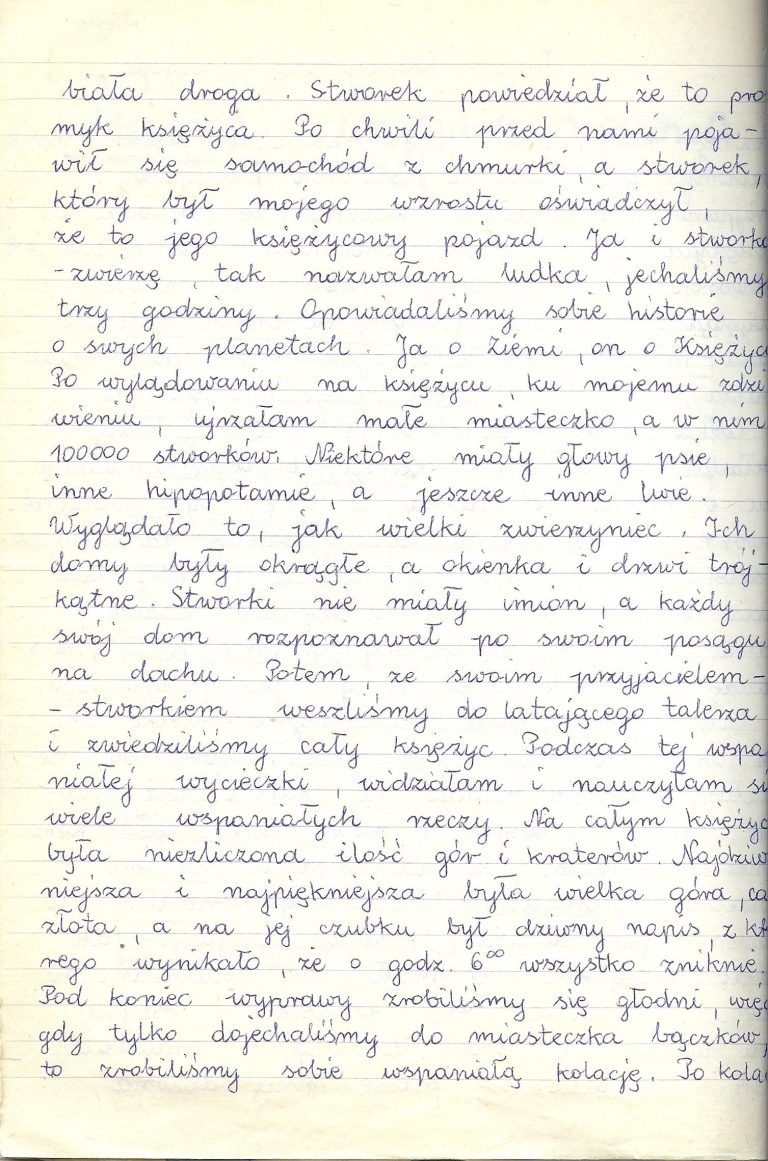 biała droga. Stworek powiedział, że to pro
myk księżyca. Po chwili przed nami poja-
wił się samochód z chmurki, a stworek,
który był mojego wzrostu oświadczył,
że to jego księżycowy pojazd. Ja i stwork
-zwierzę, tak nazwałam ludka, jechaliśmy
trzy godziny. Opowiadaliśmy sobie historie
o swych planetach. Ja o Ziemi, on o Księżyc
Po wylądowaniu na księżycu, ku mojemu zdzi
wieniu, ujrzałam małe miasteczko, a w nim
100000 stworków. Niektóre miały głowy psie,
inne hipopotamie, a jeszcze inne lwie.
Wyglądało to, jak wielki zwierzyniec. Ich
domy były okrągłe, a okienka i drzwi trój-
kątne. Stworki nie miały imion, a każdy
swój dom rozpoznawał po swoim posągu
na dachu. Potem, ze swoim przyjacielem-
- stworkiem weszliśmy do latającego talerza
i zwiedziliśmy cały księżyc. Podczas tej wspa
niałej wycieczki, widziałam i nauczyłam si
wiele wspaniałych rzeczy. Na całym księżyc
była niezliczona ilość gór i kraterów. Najdziw
niejsza i najpiękniejsza była wielka góra, ca
złota, a na jej czubku był dziwny napis, z kt
rego wynikało, że o godz. 6⁰⁰ wszystko zniknie.
Pod koniec wyprawy zrobiliśmy się głodni, więc
gdy tylko dojechaliśmy do miasteczka bączków,
to zrobiliśmy sobie wspaniałą kolację. Po kola